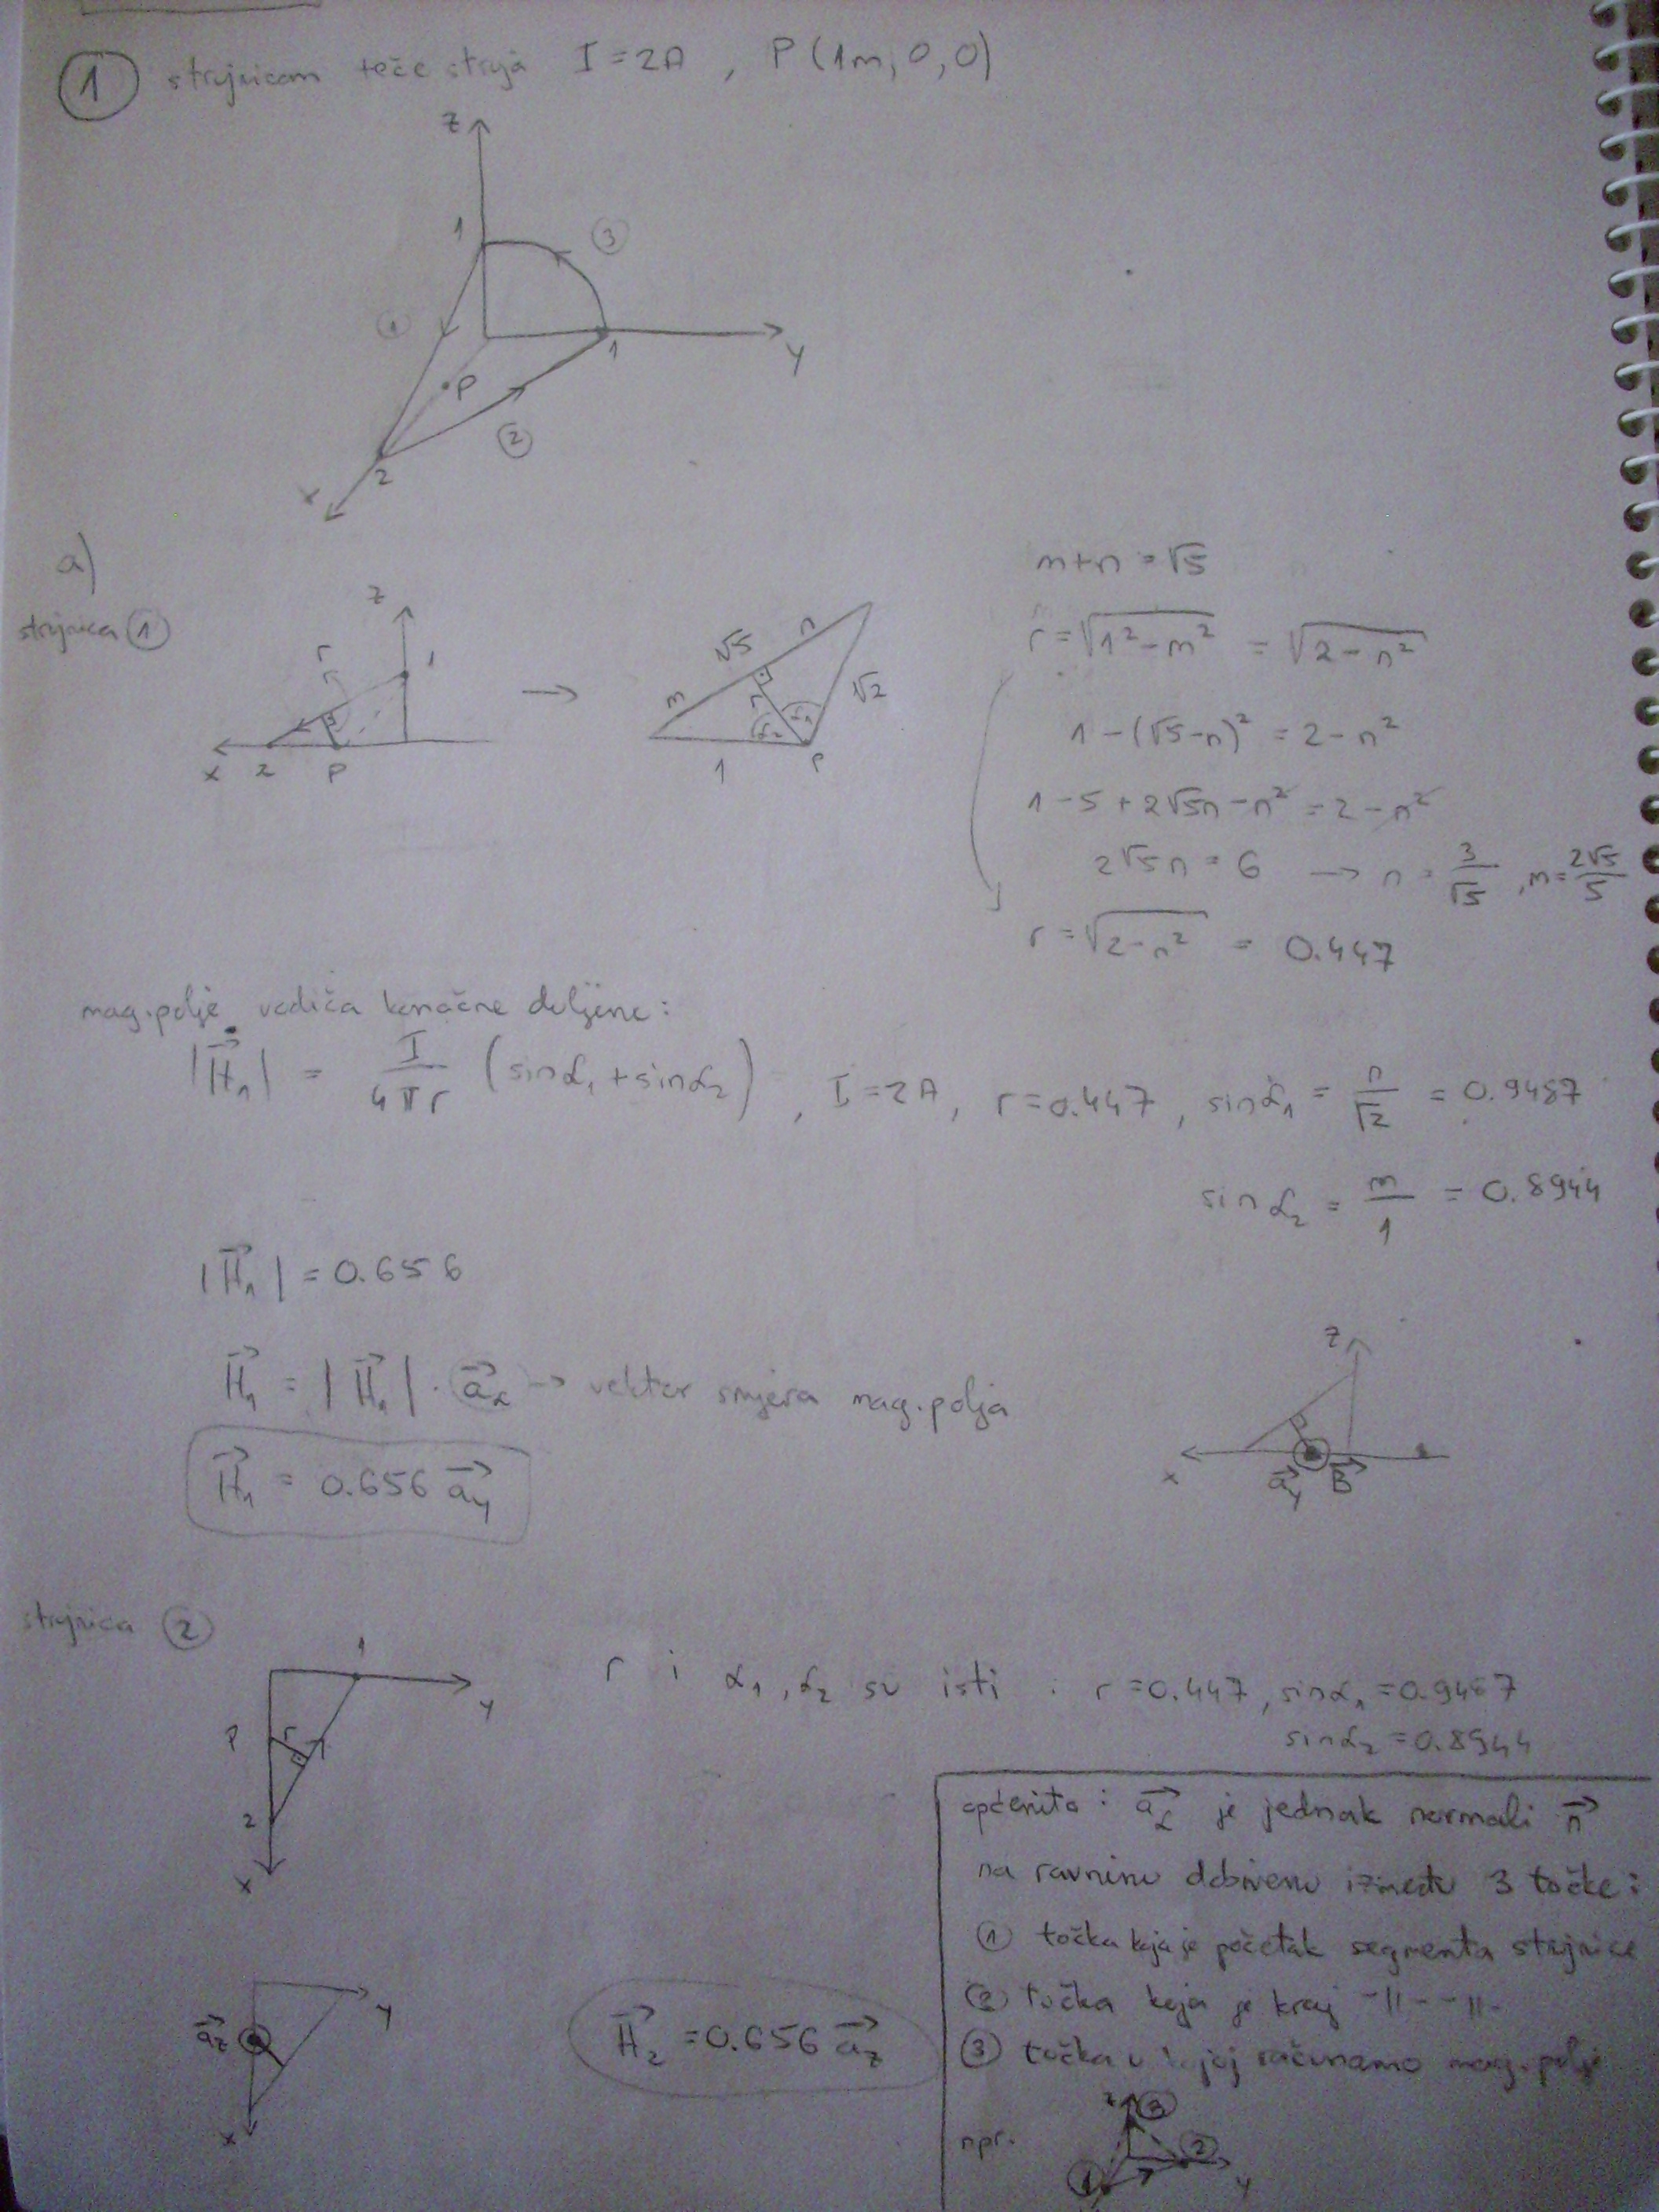 ① strujnicom teče struja I=2A , P(1m, 0, 0)
z
1
③
①
1
y
P
②
2
x
a)
strujnica ①
z
r
1
x 2 P
→
√5
n
m
r
√2
α₂ α₁
1
P
m+n = √5
r = √(1²-m²) = √(2-n²)
1-(√5-n)² = 2-n²
1-5+2√5n-n² = 2-n²
2√5n = 6 → n = 3/√5 , m = 2√5/5
r = √(2-n²) = 0.447
mag.polje vodiča konačne duljine:
|H⃗₁| = I/(4πr) (sinα₁+sinα₂) , I=2A, r=0.447, sinα₁ = n/√2 = 0.9487
sinα₂ = m/1 = 0.8944
|H⃗₁| = 0.656
H⃗₁ = |H⃗₁| · a⃗α → vektor smjera mag.polja
H⃗₁ = 0.656 a⃗y
z
x
a⃗y B⃗
strujnica ②
1
y
P
r
2
x
r i α₁, α₂ su isti : r=0.447, sinα₁=0.9487
sinα₂=0.8944
općenito : a⃗α je jednak normali n⃗
na ravninu dobivenu između 3 točke:
① točka koja je početak segmenta strujnice
② točka koja je kraj -11- -11-
③ točka u kojoj računamo mag.polje
npr.
z ③
②
y
①
y
a⃗z
x
H⃗₂ = 0.656 a⃗z